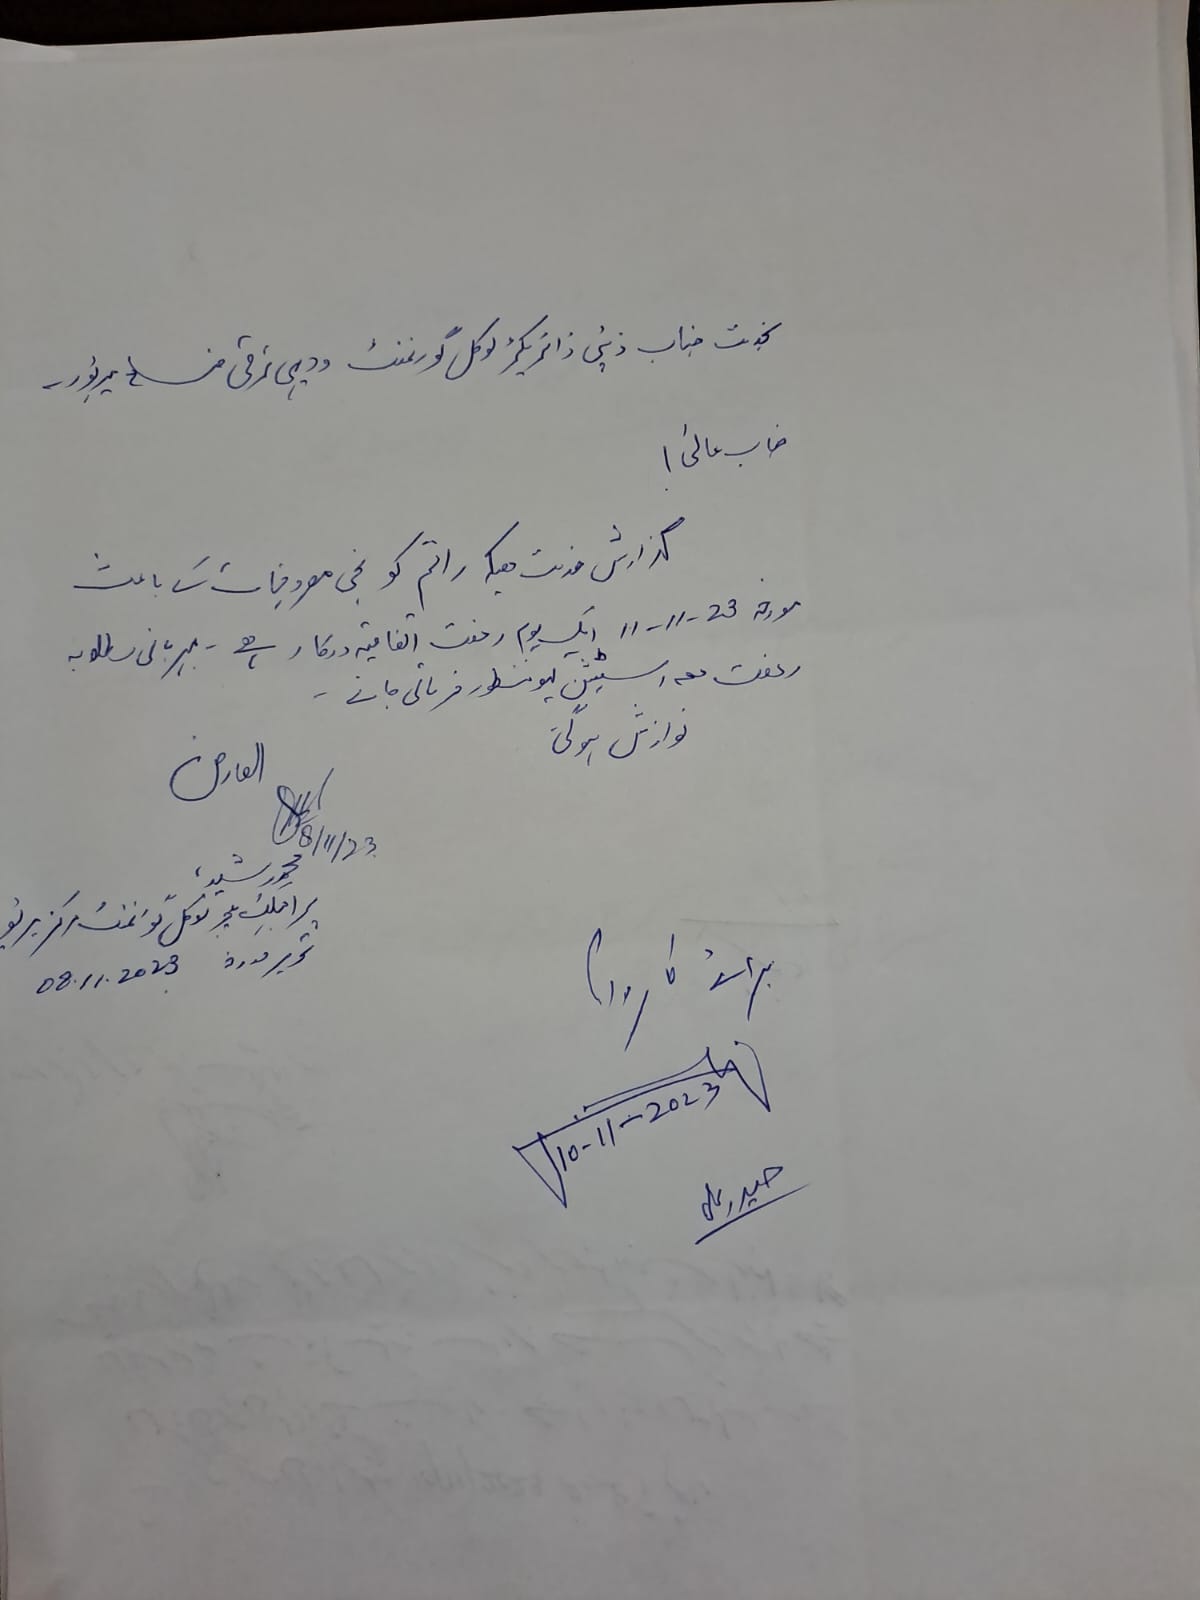 بخدمت جناب ڈپٹی ڈائریکٹر لوکل گورنمنٹ و دیہی ترقی ضلع میرپور۔
جناب عالی!
گزارش خدمت ہیکہ راقم کو نجی مصروفیات کے باعث
مورخہ 11-11-23 ایک یوم رخصت اتفاقیہ درکار ہے۔ مہربانی مطلوبہ
رخصت معہ اسٹیشن لیو منظور فرمائی جائے۔
نوازش ہوگی
العارض
8/11/23
محمد رشید
پراجیکٹ منیجر لوکل گورنمنٹ مرکز میرپور
تحریر مورخہ 08.11.2023
برائے کاروائی
10-11-2023
حیدر علی